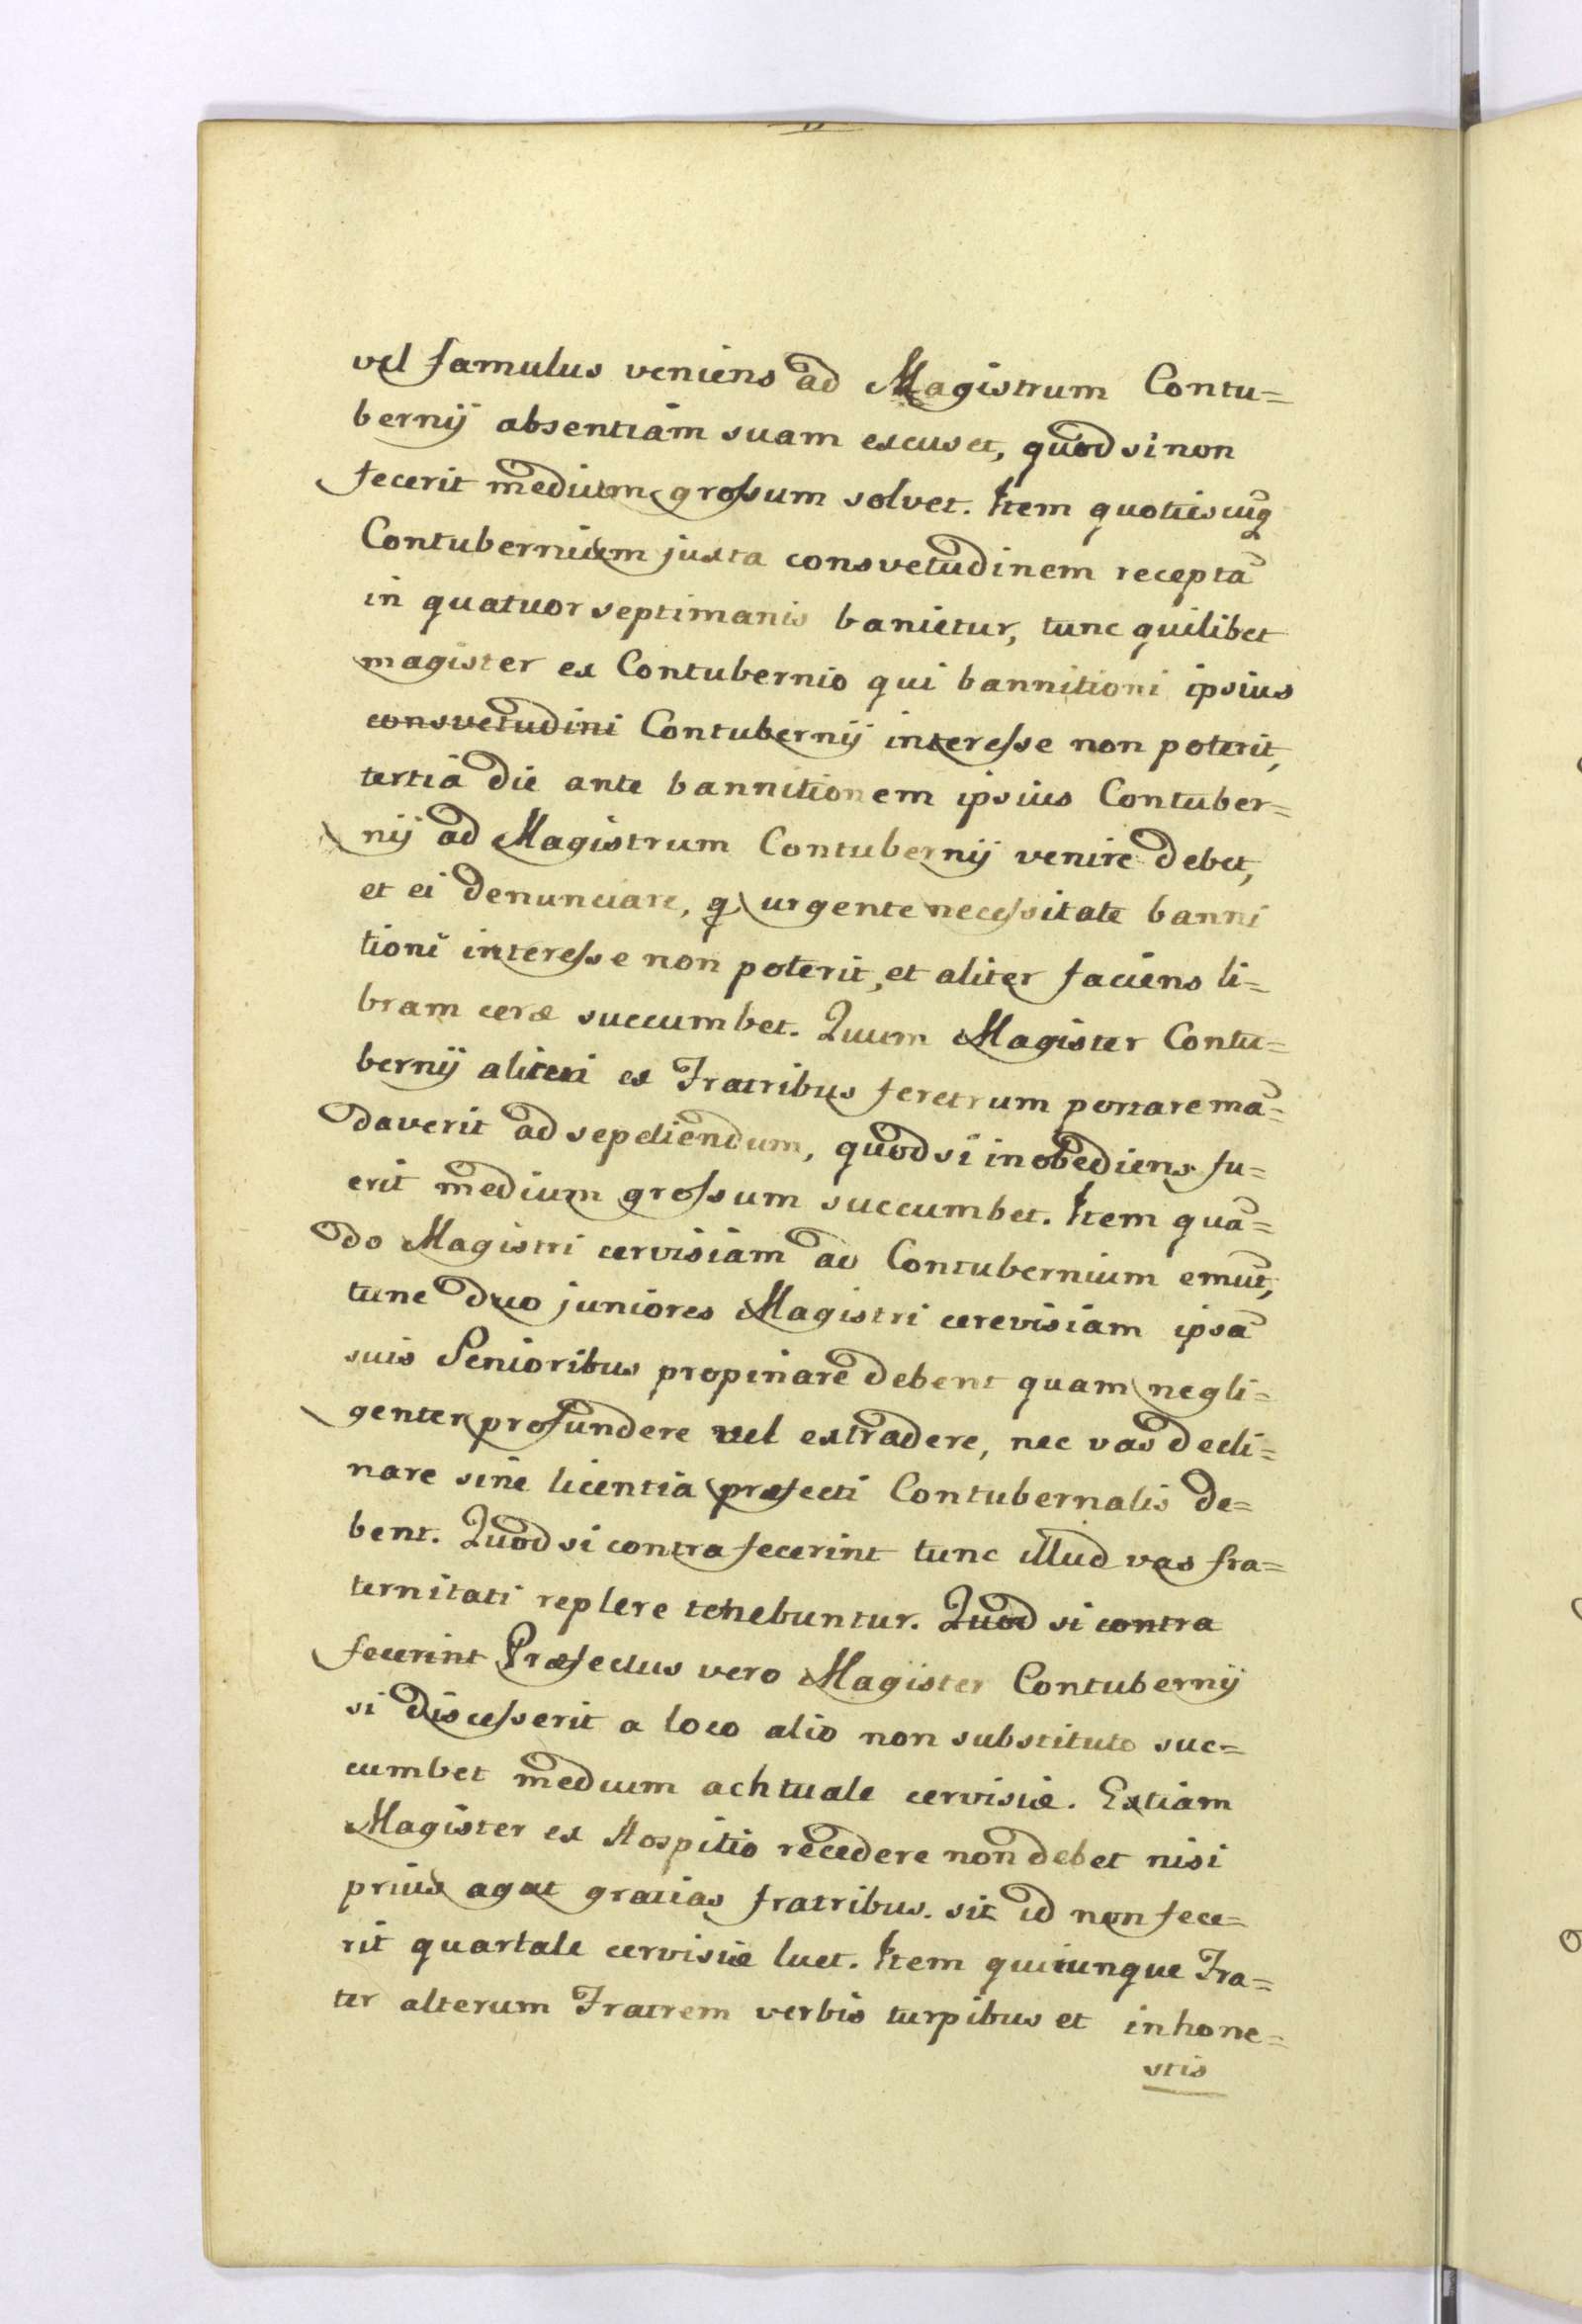 vel famulus veniens ad Magistrum Contu=
bernij absentiam suam excuset, quod si non
fecerit medium grossum solvet. Item quotiescunq
Contubernium juxta consvetudinem receptā
in quatuor septimanis banietur, tunc quilibet
magister ex Contubernio qui bannitioni ipsius
consvetudini Contubernij interesse non poterit,
tertia die ante bannitionem ipsius Contuber=
nij ad Magistrum Contubernij venire debet,
et ei denunciare, q urgente necessitate banni
tioni interesse non poterit, et aliter faciens li=
bram ceræ succumbet. Quum Magister Contu=
bernij alicui ex Fratribus feretrum portare mā=
daverit ad sepeliendum, quod si inobediens fu=
erit medium grossum succumbet. Item quā=
do Magistri cervisiam ad Contubernium emūt,
tunc duo juniores Magistri cerevisiam ipsā
suis Senioribus propinare debent quam negli=
genter profundere vel extradere, nec vas decli=
nare sine licentia præfecti Contubernalis de=
bent. Quod si contra fecerint tunc illud vas fra=
ternitati replere tenebuntur. Quod si contra
fecerint Præfectus vero Magister Contubernij
si discesserit a loco alio non substituto suc=
cumbet medium achtuale cervisiæ. Extiam
Magister ex Hospitio recedere non debet nisi
prius agat gratias fratribus. sit id non fece=
rit quartale cervisiæ luet. Item quicunque Fra=
ter alterum Fratrem verbis turpibus et inhone=
stis